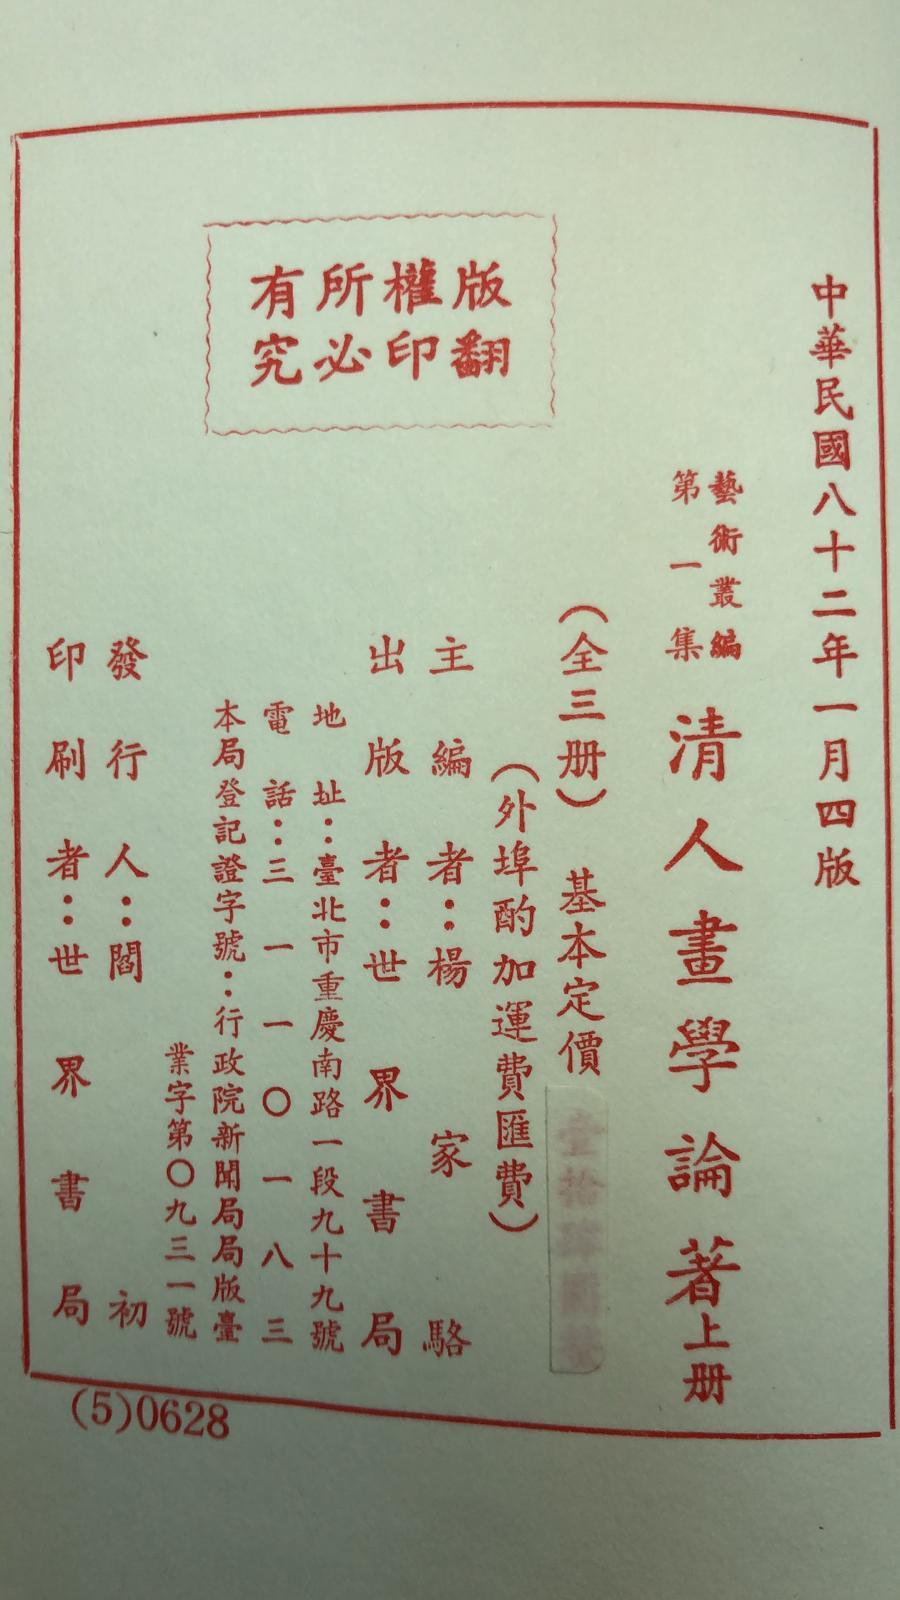 中華民國八十二年一月四版
藝術叢編
第一集
清人畫學論著上册
(全三册) 基本定價
(外埠酌加運費匯費)
主編者:楊家駱
出版者:世界書局
地址:臺北市重慶南路一段九十九號
電話:三一一〇一八三
本局登記證字號:行政院新聞局局版臺
業字第〇九三一號
發行人:閻初
印刷者:世界書局
版權所有
翻印必究
(5)0628